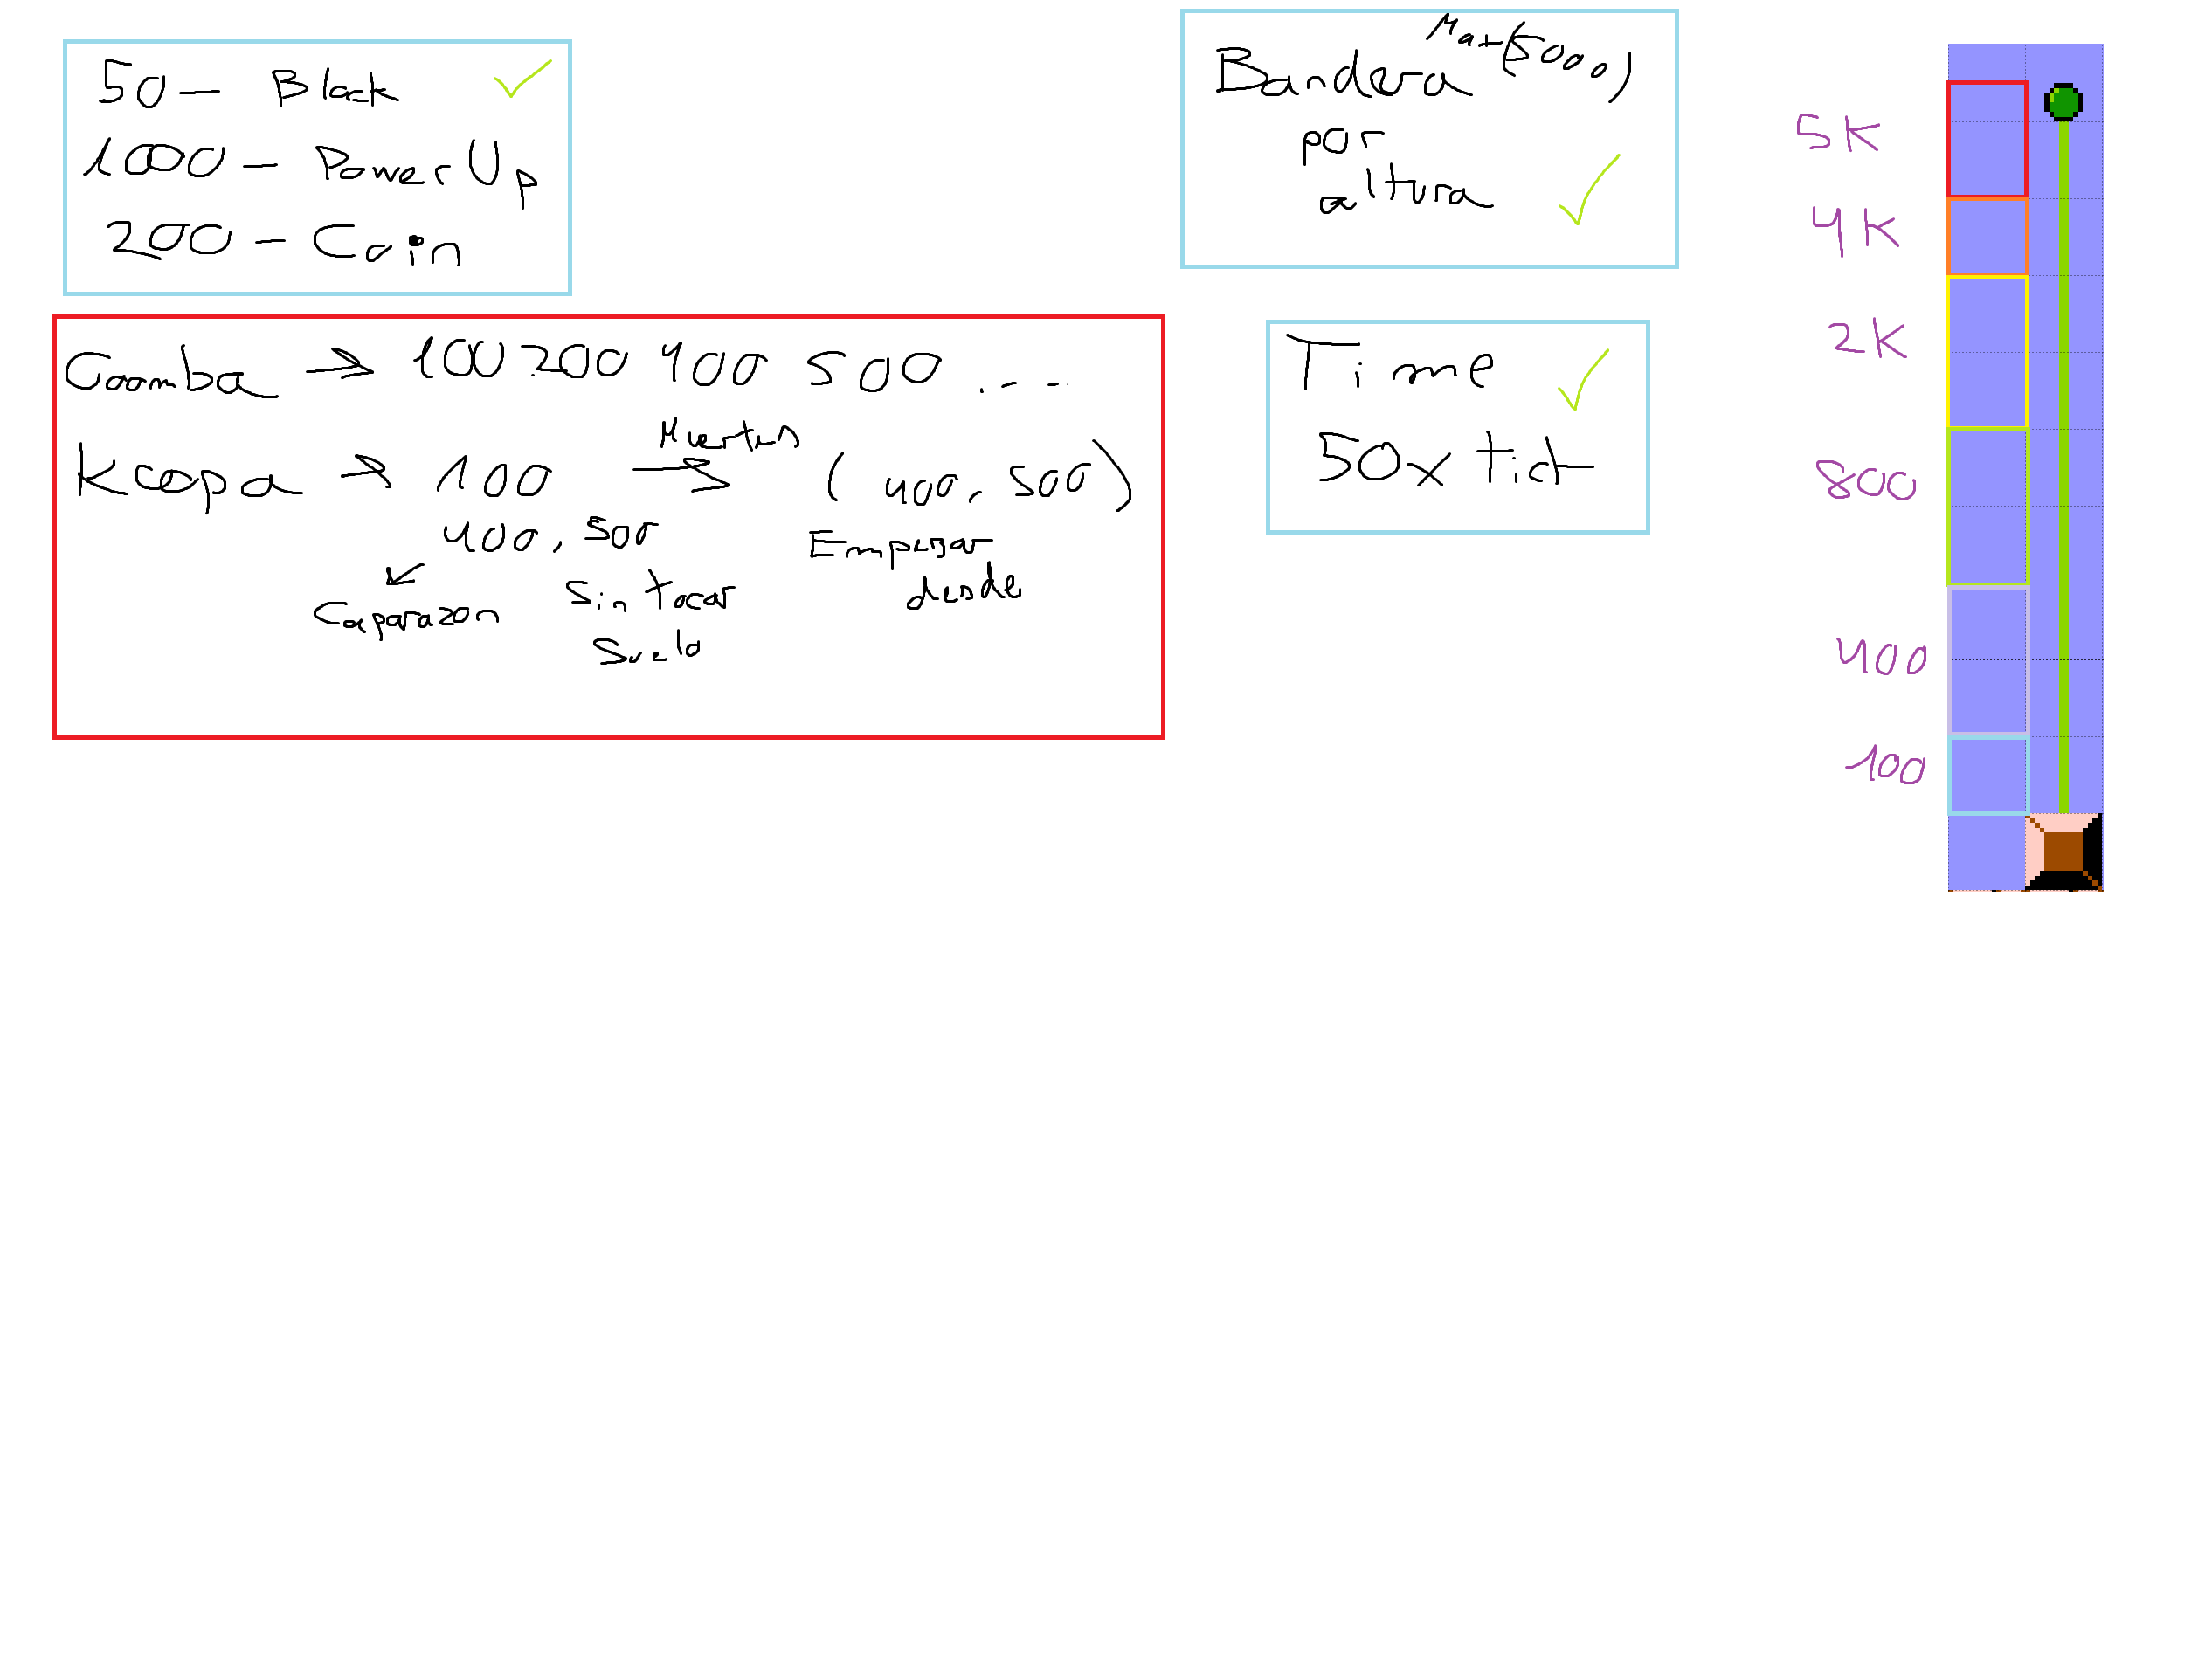 50 - Block
1000 - PowerUp
200 - Coin
Goomba → 100 200 400 500 ....
Koopa → 100 Muertes → (400, 500)
400, 500 Empezar
Caparazon Sin tocar desde
Suelo
Bandera Max(5000)
por
altura
Time
50x tick
5K
4K
2K
800
400
100